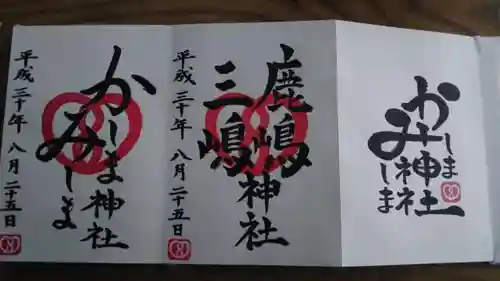 かしま神社
みしま
平成三十年 八月二十五日
鹿嶋神社
三嶋
平成三十年 八月二十五日
かしま神社
みしま神社